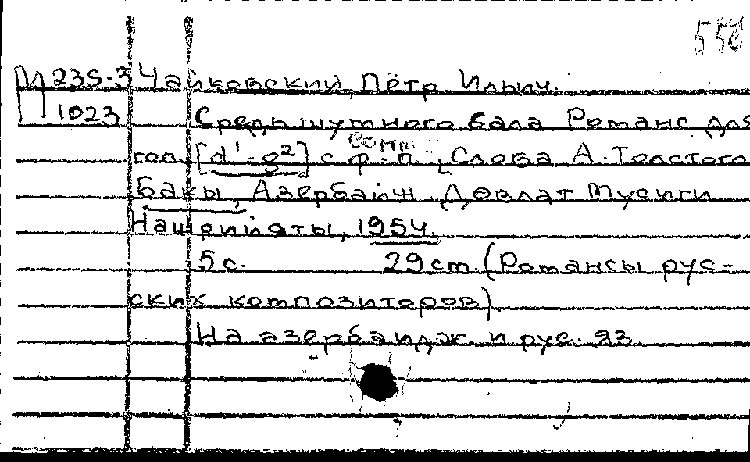 550
М 235-3 Чайковский Пётр Ильич.
1023 Средь шумного бала Романс для
гол. [d¹-g²] с ф-п., Слова А. Толстого
Бакы, Азербайҹн Дѳвлат Мусиги
Нашрийяты, 1954.
5 с. 29 cm (Романсы рус-
ских композиторов)
На азербайдж. и рус. яз.